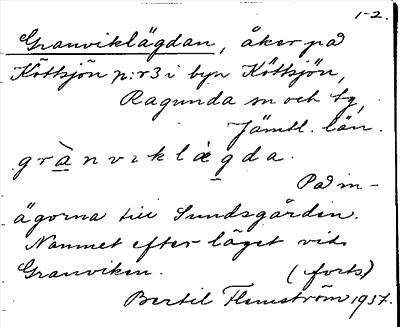 1-2.
Granviklägdan, åker på
Köttsjön n:r 3 i byn Köttsjön,
Ragunda sn och tg,
Jämtl. län.
grànviklä̀gda.
På in-
ägorna till Sundsgården.
Namnet efter läget vid
Granviken. (forts)
Bertil Flemström 1937.